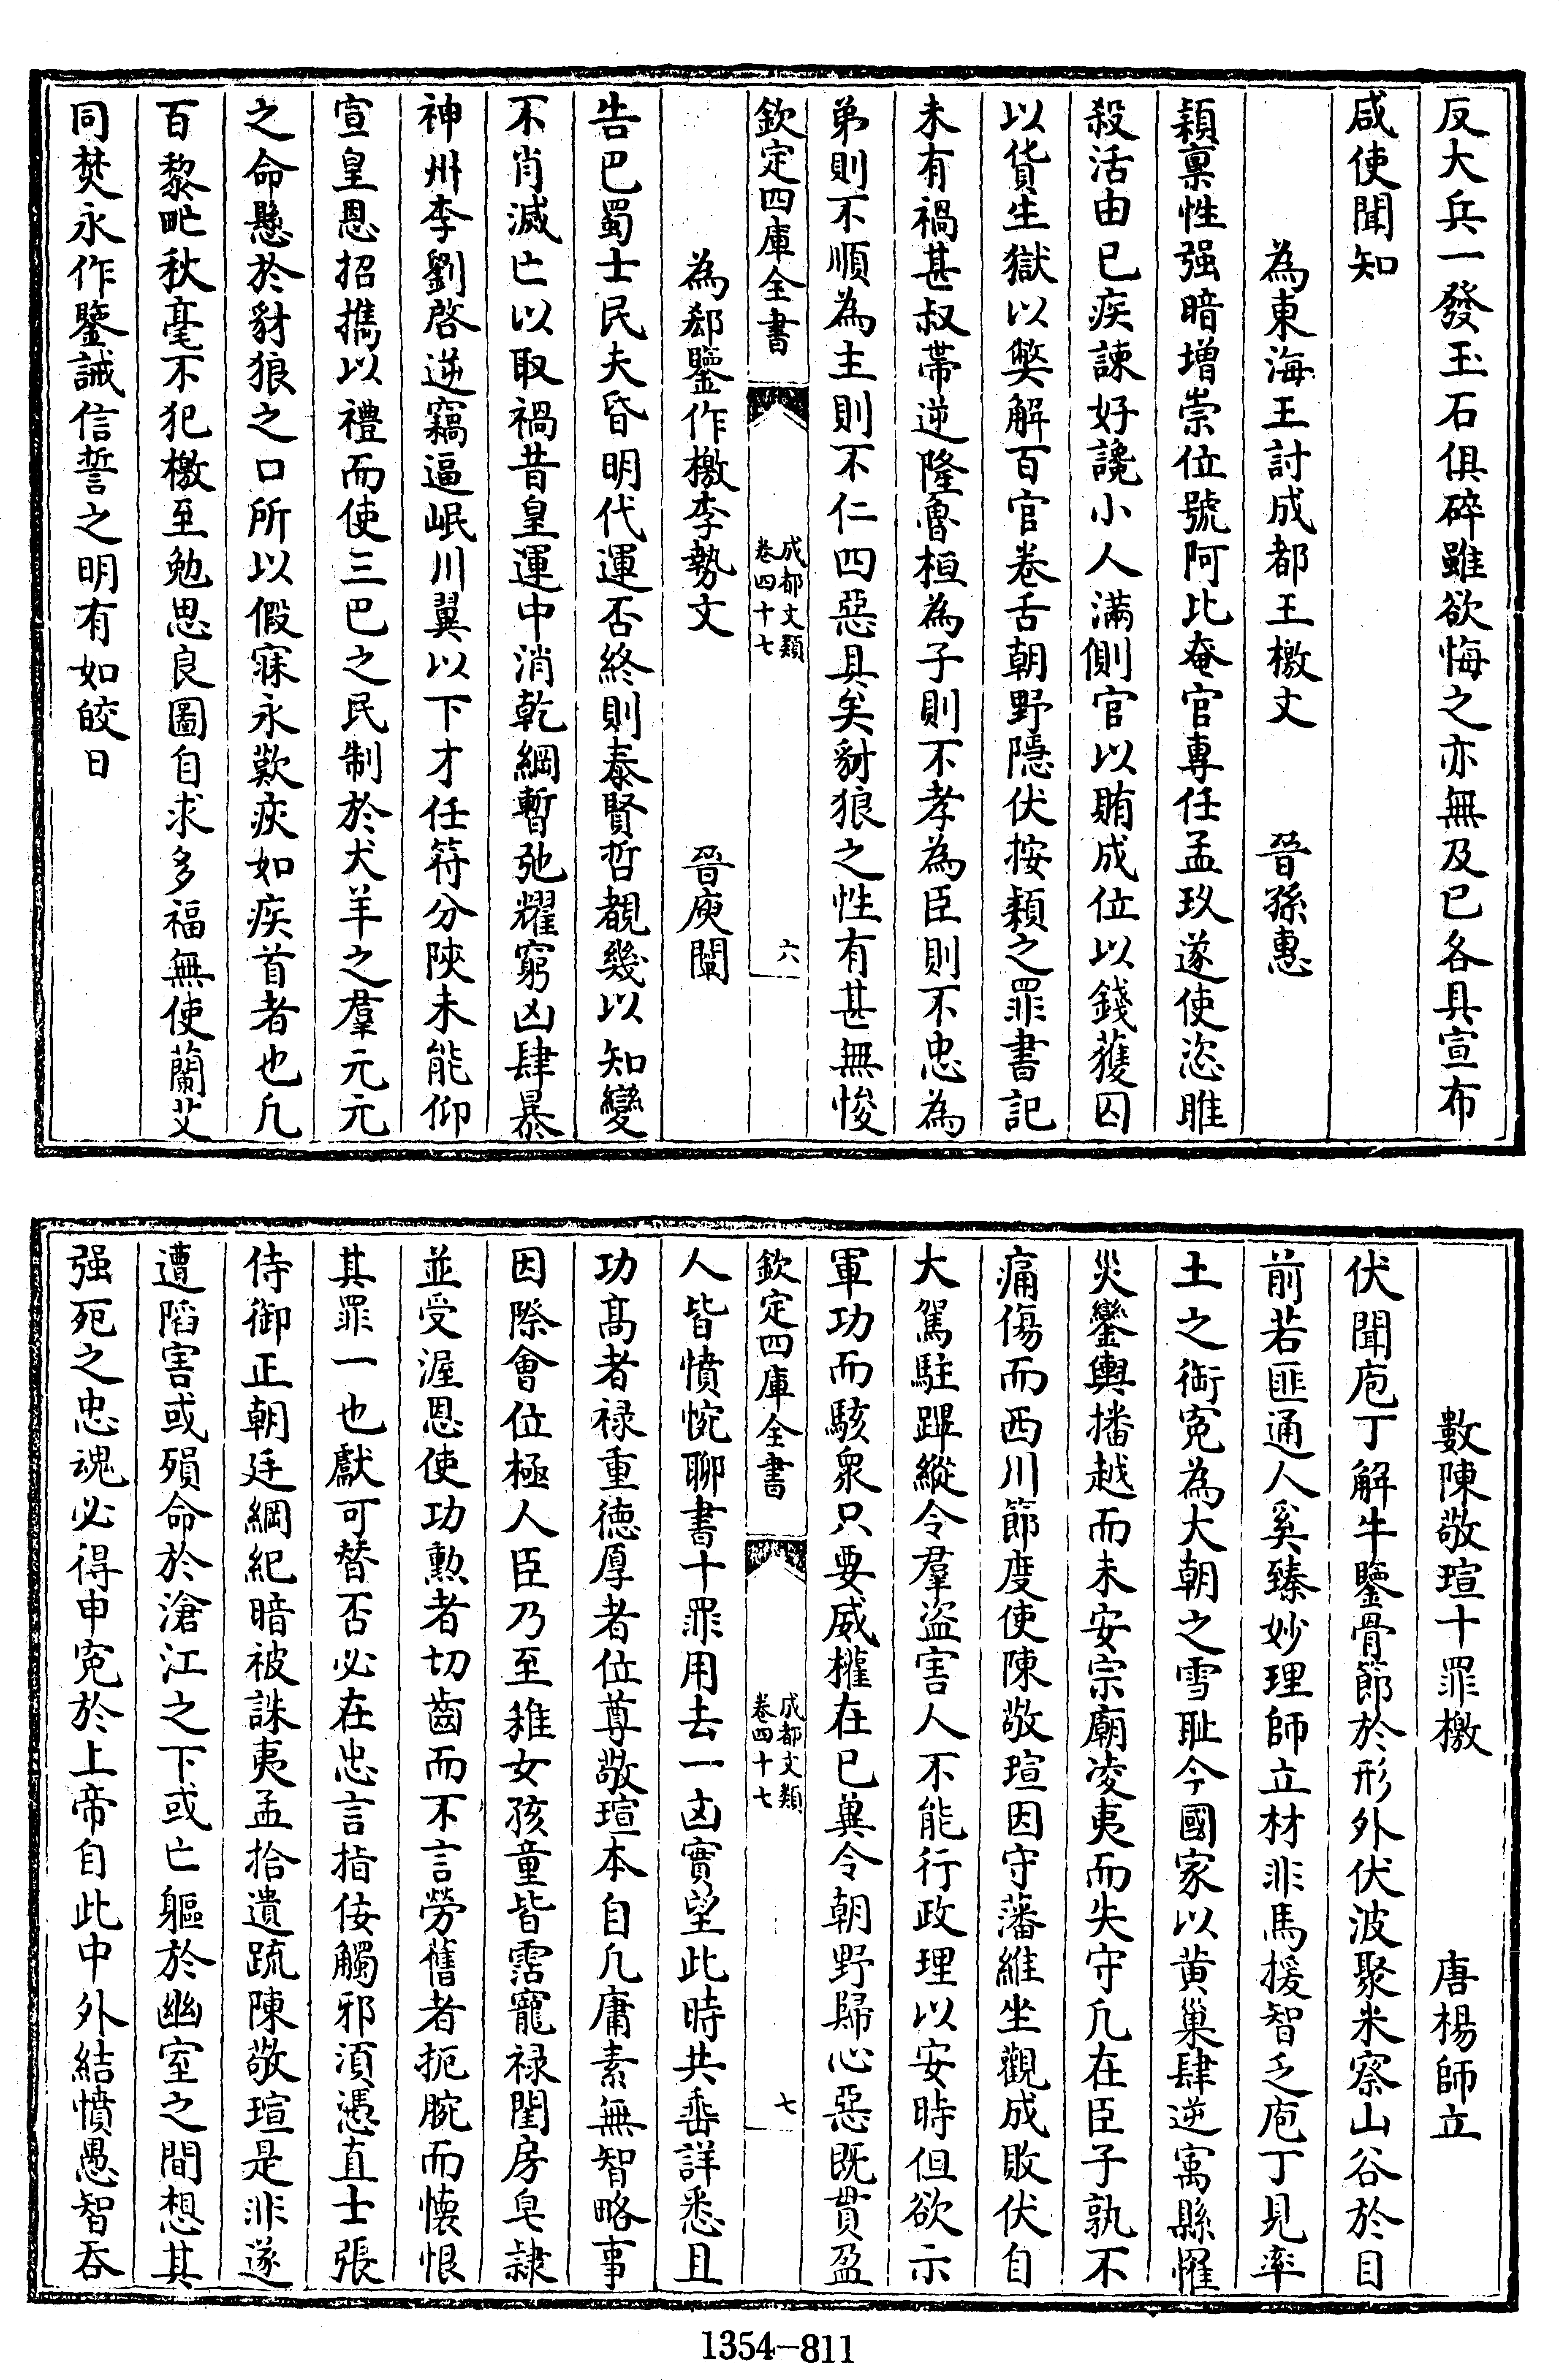 反大兵一發玉石俱碎雖欲悔之亦無及已各具宣布
咸使聞知
為東海王討成都王檄文　晉孫惠
穎稟性强暗增崇位號阿比奄官專任孟玖遂使恣睢
殺活由已疾諫好讒小人滿側官以賄成位以錢獲囚
以貨生獄以獘解百官卷舌朝野隱伏按穎之罪書記
未有禍甚叔帶逆隆魯桓為子則不孝為臣則不忠為
弟則不順為主則不仁四惡具矣豺狼之性有甚無悛
欽定四庫全書　成都文類　卷四十七　六
為郄鑒作檄李勢文　晉庾闡
告巴蜀士民夫昏明代運否終則泰賢哲覩幾以知變
不肖滅亡以取禍昔皇運中消乾綱暫弛耀窮凶肆暴
神州李劉啓逆竊逼岷川翼以下才任符分陝未能仰
宣皇恩招攜以禮而使三巴之民制於犬羊之羣元元
之命懸於豺狼之口所以假寐永歎疢如疾首者也凡
百黎甿秋毫不犯檄至勉思良圖自求多福無使蘭艾
同焚永作鑒誡信誓之明有如皎日
數陳敬瑄十罪檄　唐楊師立
伏聞庖丁解牛鑒骨節於形外伏波聚米察山谷於目
前若匪通人奚臻妙理師立材非馬援智乏庖丁見率
土之銜寃為大朝之雪耻今國家以黄巢肆逆寓縣罹
災鑾輿播越而未安宗廟凌夷而失守凡在臣子孰不
痛傷而西川節度使陳敬瑄因守藩維坐觀成敗伏自
大駕駐蹕縱令羣盜害人不能行政理以安時但欲示
軍功而駭衆只要威權在已兾令朝野歸心惡既貫盈
欽定四庫全書　成都文類　卷四十七　七
人皆憤惋聊書十罪用去一凶實望此時共垂詳悉且
功高者禄重德厚者位尊敬瑄本自凡庸素無智略事
因際會位極人臣乃至稚女孩童皆霑寵禄閨房皂隸
並受渥恩使功勲者切齒而不言勞舊者扼腕而懷恨
其罪一也獻可替否必在忠言指佞觸邪湏憑直士張
侍御正朝廷綱紀暗被誅夷孟拾遺疏陳敬瑄是非遂
遭䧟害或殞命於滄江之下或亡軀於幽室之間想其
强死之忠魂必得申寃於上帝自此中外結憤愚智吞
1354-811